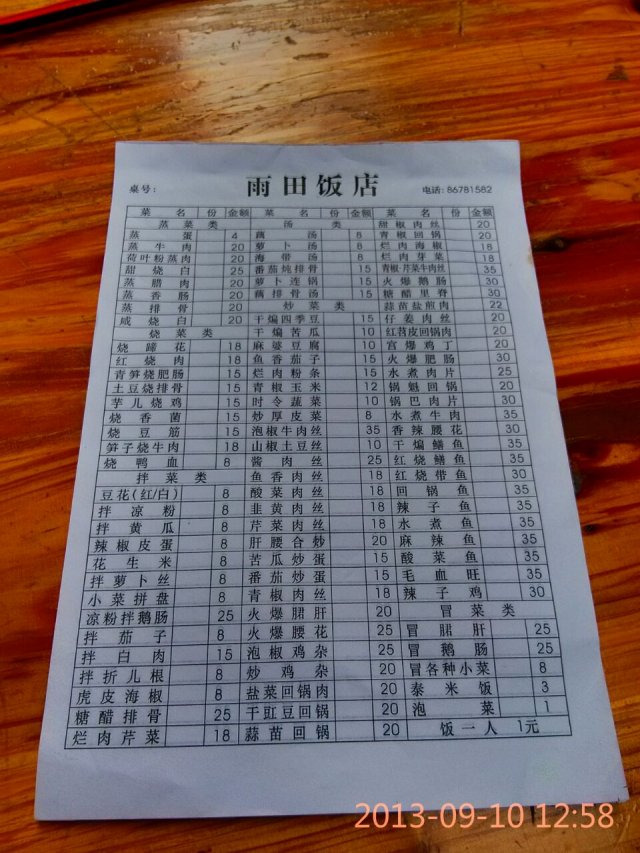 雨田饭店
桌号： 电话: 86781582
菜名 份 金额 菜名 份 金额 菜名 份 金额
蒸菜类 汤类 甜椒肉丝 20
蒸蛋 4 藕汤 8 青椒回锅 20
蒸牛肉 20 萝卜汤 8 烂肉海椒 18
荷叶粉蒸肉 20 海带汤 8 烂肉芽菜 18
甜烧白 25 番茄炖排骨 15 青椒·芹菜牛肉丝 35
蒸腊肉 20 萝卜连锅 15 火爆鹅肠 30
蒸香肠 20 藕排骨汤 15 糖醋里脊 30
蒸排骨 20 炒菜类 蒜苗盐煎肉 22
咸烧白 20 干煸四季豆 15 仔姜肉丝 20
烧菜类 干煸苦瓜 10 红苕皮回锅肉 20
烧蹄花 18 麻婆豆腐 10 宫爆鸡丁 20
红烧肉 18 鱼香茄子 15 火爆肥肠 30
青笋烧肥肠 15 烂肉粉条 15 水煮肉片 25
土豆烧排骨 15 青椒玉米 12 锅魁回锅 20
芋儿烧鸡 15 时令蔬菜 10 锅巴肉片 30
烧香菌 15 炒厚皮菜 8 水煮牛肉 35
烧豆筋 15 泡椒牛肉丝 35 香辣腰花 30
笋子烧牛肉 18 山椒土豆丝 10 干煸鳝鱼 35
烧鸭血 8 酱肉丝 25 红烧鳝鱼 35
拌菜类 鱼香肉丝 18 红烧带鱼 30
豆花(红/白) 8 酸菜肉丝 18 回锅鱼 35
拌凉粉 8 韭黄肉丝 18 辣子鱼 35
拌黄瓜 8 芹菜肉丝 18 水煮鱼 35
辣椒皮蛋 8 肝腰合炒 20 麻辣鱼 35
花生米 8 苦瓜炒蛋 15 酸菜鱼 35
拌萝卜丝 8 番茄炒蛋 15 毛血旺 35
小菜拼盘 8 青椒肉丝 18 辣子鸡 30
凉粉拌鹅肠 25 火爆腘肝 20 冒菜类
拌茄子 8 火爆腰花 25 冒腘肝 25
拌白肉 15 泡椒鸡杂 25 冒鹅肠 25
拌折儿根 8 炒鸡杂 20 冒各种小菜 8
虎皮海椒 8 盐菜回锅肉 20 泰米饭 3
糖醋排骨 25 干豇豆回锅 20 泡菜 1
烂肉芹菜 18 蒜苗回锅 20 饭一人 1元
2013-09-10 12:58